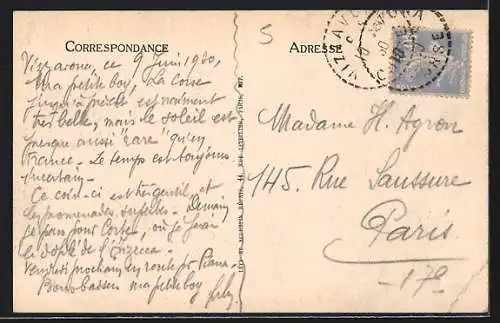 CORRESPONDANCE
ADRESSE
5
VIZZAVONA
CORSE
Vizzavona, ce 9 Juin 1930,
Ma petite boy, La Corse
jusqu'à présent est vraiment
très belle, mais le soleil est
presque aussi "rare" qu'en
France - Le temps est toujours
incertain -
Ce coin-ci est très gentil, et
les promenades superbes - Demain
je pars pour Corte, où je ferai
le défilé de l'Inzecca -
Vendredi prochain en route pr Piana -
Bons baisers ma petite boy
Madame H. Agron
145. Rue Saussure
Paris
- 17e -